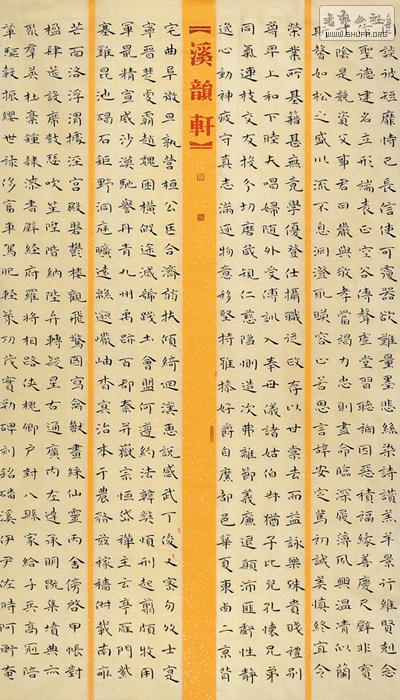 書藝公社
WWW.SHUFA.ORG
談彼短靡恃己長信使可覆器欲難量墨悲絲染詩讚羔羊景行維賢剋念
聖德建名立形端表正空谷傳聲虛堂習聽禍因惡積福緣善慶尺璧非寶
陰是競資父事君曰嚴與敬孝當竭力忠則盡命臨深履薄夙興溫凊似蘭
斯馨如松之盛川流不息淵澄取暎容止若思言辭安定篤初誠美慎終宜令
榮業所基籍甚無竟學優登仕攝職從政存以甘棠去而益詠樂殊貴賤禮別
尊卑上和下睦夫唱婦隨外受傅訓入奉母儀諸姑伯叔猶子比兒孔懷兄弟
同氣連枝交友投分切磨箴規仁慈隱惻造次弗離節義廉退顛沛匪虧性靜
逸心動神疲守真志滿逐物意移堅持雅操好爵自縻都邑華夏東西二京背
【溪韻軒】
宅曲阜微旦孰營桓公匡合濟弱扶傾綺迴漢惠說感武丁俊乂密勿多士寔
寧晉楚更霸趙魏困橫假途滅虢踐土會盟何遵約法韓弊煩刑起翦頗牧用
軍最精宣威沙漠馳譽丹青九州禹跡百郡秦并嶽宗恒岱禪主云亭雁門紫
塞雞昆池碣石鉅野洞庭曠遠緜邈巖岫杳冥治本于農務茲稼穡俶載南畝
芒面洛浮渭據涇宮殿盤鬱樓觀飛驚圖寫禽獸畫綵仙靈丙舍傍啓甲帳對
楹肆筵設席鼓瑟吹笙陞階納陛弁轉疑星右通廣內左達承明既集墳典亦
聚群英杜稾鍾隸漆書壁經府羅將相路俠槐卿戶封八縣家給千兵高冠陪
輦驅轂振纓世祿侈富車駕肥輕策功茂實勒碑刻銘磻溪伊尹佐時阿衡奄